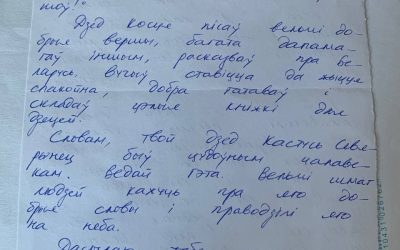 шоў!"
Дзед Косце пісаў вельмі до-
брыя вершы, багата дапама-
гаў іншым, расказваў пра Бе-
ларусь, вучыў ставіцца да жыцця
спакойна, добра гатаваў і
складаў цэлыя кніжкі для
дзяцей.
Словам, твой дзед Кастусь Севя-
рынец быў цудоўным чалаве-
кам. Ведай гэта. Вельмі шмат
людзей кажуць пра яго до-
брыя словы і праводзілі яго
на неба.
104311026762